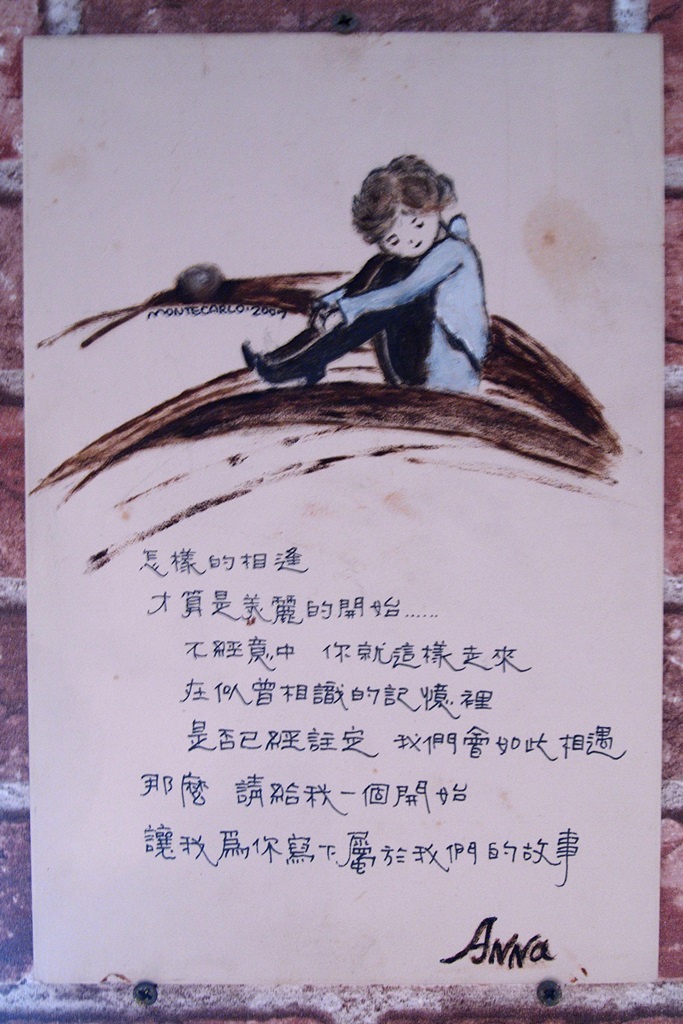 MONTECARLO. 2009
怎樣的相逢
才算是美麗的開始......
不經意中 你就這樣走來
在似曾相識的記憶裡
是否已經註定 我們會如此相遇
那麼 請給我一個開始
讓我為你寫下屬於我們的故事
ANNa